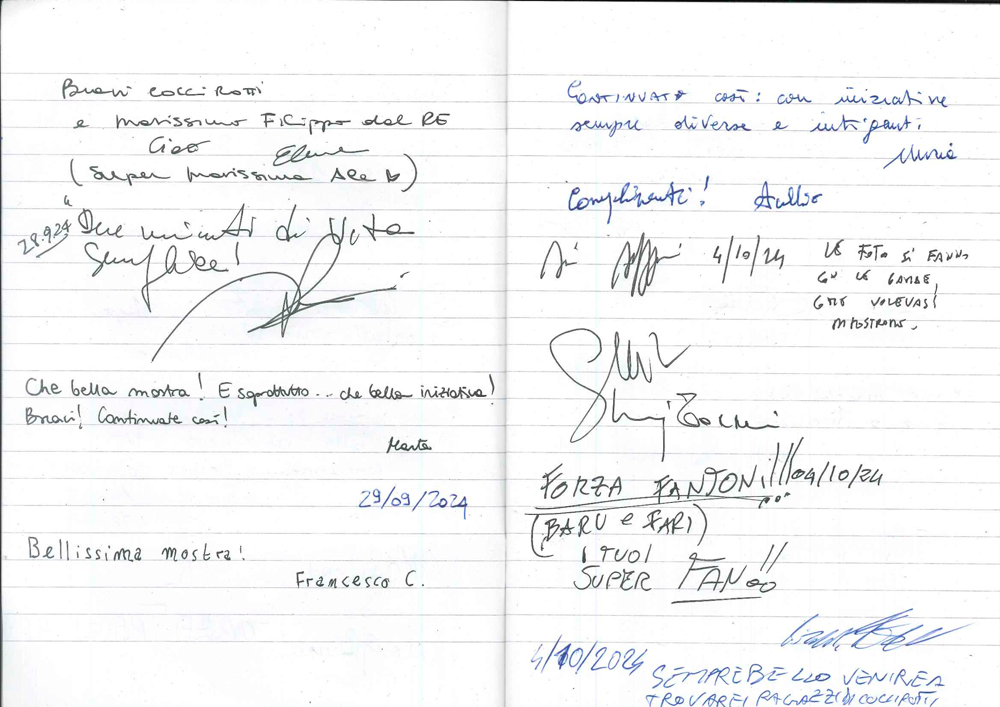 Bravi COCCI ROTTI
e marissimo FILIppo dal RE
Ciao
(Super marissima Ale
28.9.24
"Due minuti di Vita
Che bella mostra! E soprattutto... che bella iniziativa!
Bravi! Continuate così!
Marta
29/09/2024
Bellissima mostra!
Francesco C.
CONTINUATE così: con iniziative
sempre diverse e intriganti.
Complimenti!
4/10/24
LE FOTO SI FANNO
CON LE GAMBE,
COME VOLEVASI
DIMOSTRARE.
FORZA FANTONI!!! 04/10/24
(BARU e FARI)
I TUOI
SUPER FAN!!
4/10/2024
SEMPRE BELLO VENIRE A
TROVARE I RAGAZZI DI COCCIROTTI